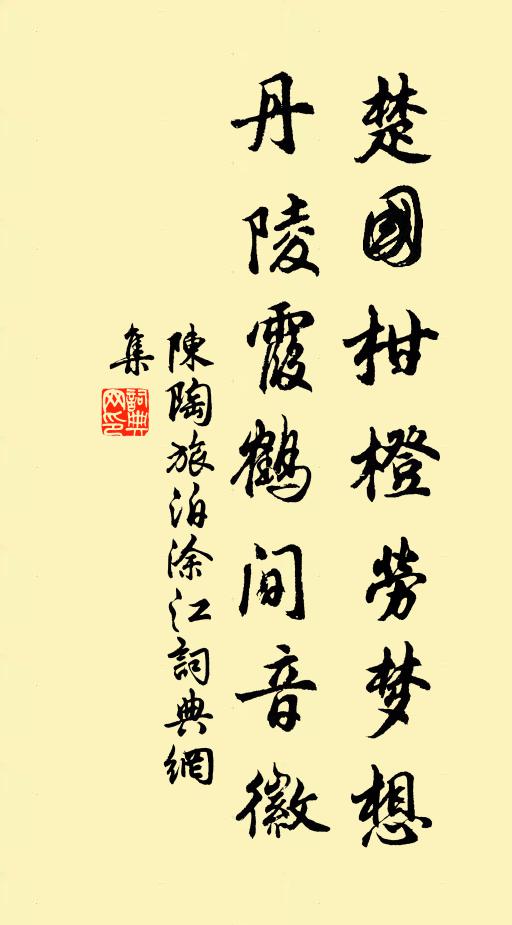 楚國柑橙勞梦想
丹陵霞鶴间音徽
陳陶旅泊涂江詞典網
集
詞典
网印